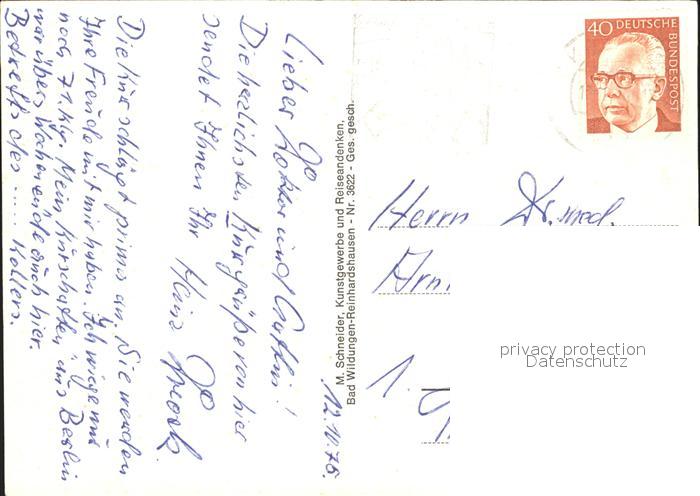 12.10.76.
Lieber Doktor und Gattin!
Die herzlichsten Kurgrüße von hier
sendet Ihnen Ihr Heinz
Die Kur schlägt prima an. Sie werden
Ihre Freude mit mir haben. Ich wiege nur
noch 71 kg. Mein Kurschatten aus Berlin
war übers Wochenende auch hier.
Betreff: des .... Kollers.
M. Schneider, Kunstgewerbe und Reiseandenken,
Bad Wildungen-Reinhardshausen - Nr. 3622 - Ges. gesch.
40 DEUTSCHE
BUNDESPOST
Herrn Dr. med.
Arn
1.
privacy protection
Datenschutz